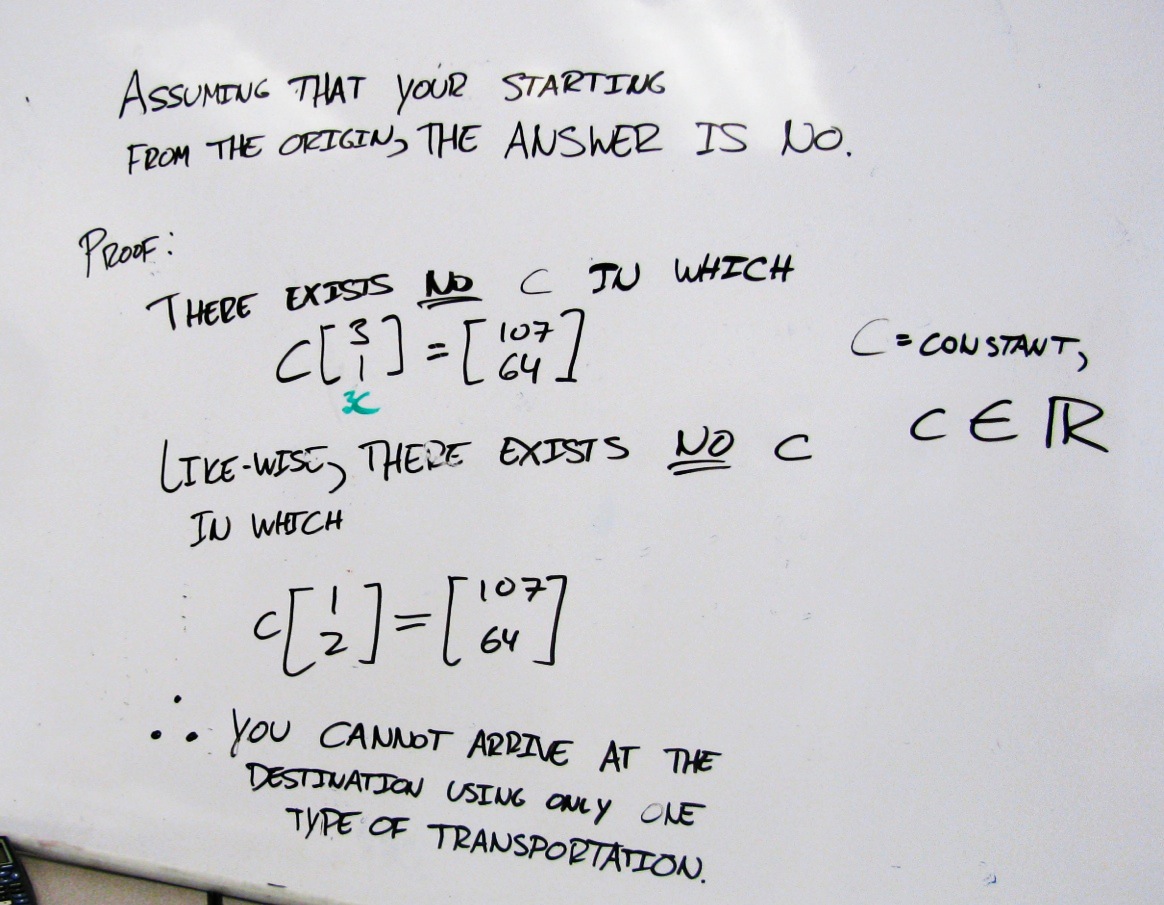 ASSUMING THAT YOUR STARTING
FROM THE ORIGIN, THE ANSWER IS NO.
PROOF:
THERE EXISTS NO C IN WHICH
C[3 1] = [107 64]
3C
C = CONSTANT,
C ∈ ℝ
LIKE-WISE, THERE EXISTS NO C
IN WHICH
C[1 2] = [107 64]
∴ YOU CANNOT ARRIVE AT THE
DESTINATION USING ONLY ONE
TYPE OF TRANSPORTATION.